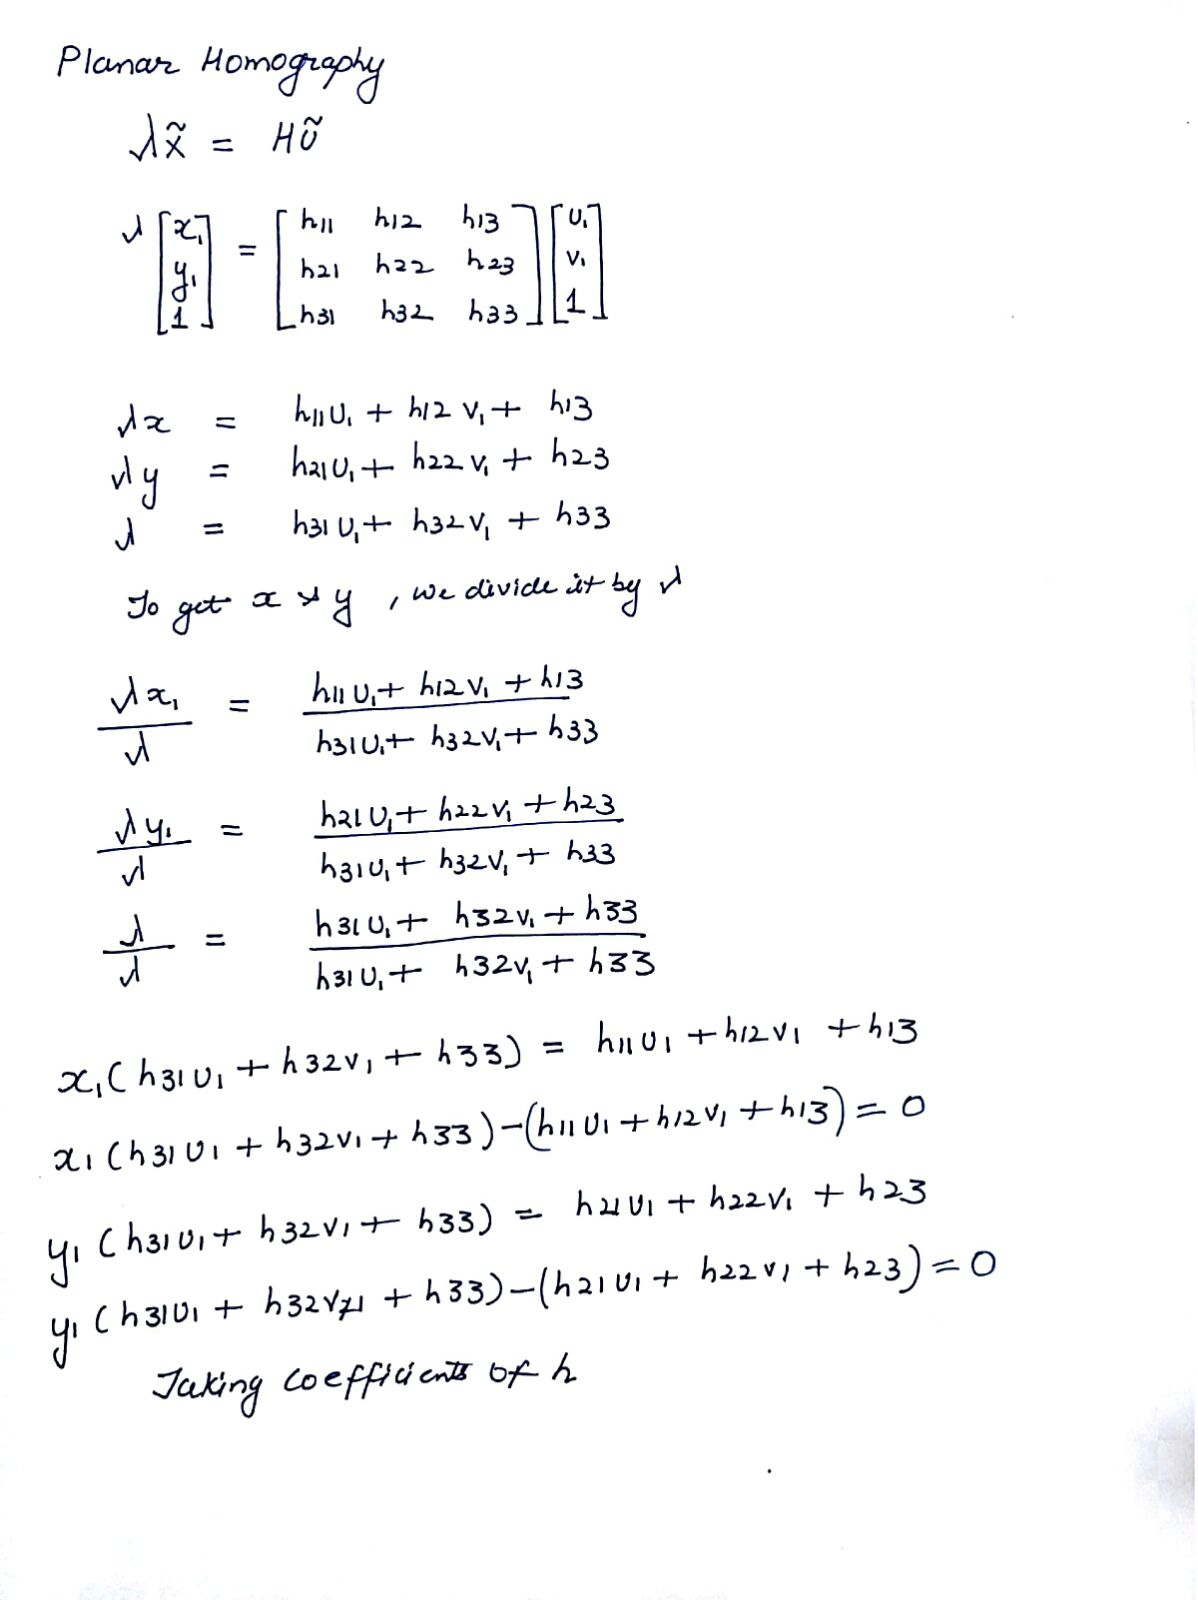 Planar Homography
λx̃ = HŨ
λ [x₁ y₁ 1] = [h11 h12 h13 h21 h22 h23 h31 h32 h33] [U₁ V₁ 1]
λx = h11U₁ + h12V₁ + h13
λy = h21U₁ + h22V₁ + h23
λ = h31U₁ + h32V₁ + h33
To get x & y, we divide it by λ
λx₁/λ = (h11U₁ + h12V₁ + h13)/(h31U₁ + h32V₁ + h33)
λy₁/λ = (h21U₁ + h22V₁ + h23)/(h31U₁ + h32V₁ + h33)
λ/λ = (h31U₁ + h32V₁ + h33)/(h31U₁ + h32V₁ + h33)
x₁(h31U₁ + h32V₁ + h33) = h11U₁ + h12V₁ + h13
x₁(h31U₁ + h32V₁ + h33) - (h11U₁ + h12V₁ + h13) = 0
y₁(h31U₁ + h32V₁ + h33) = h21U₁ + h22V₁ + h23
y₁(h31U₁ + h32V₁ + h33) - (h21U₁ + h22V₁ + h23) = 0
Taking coefficients of h